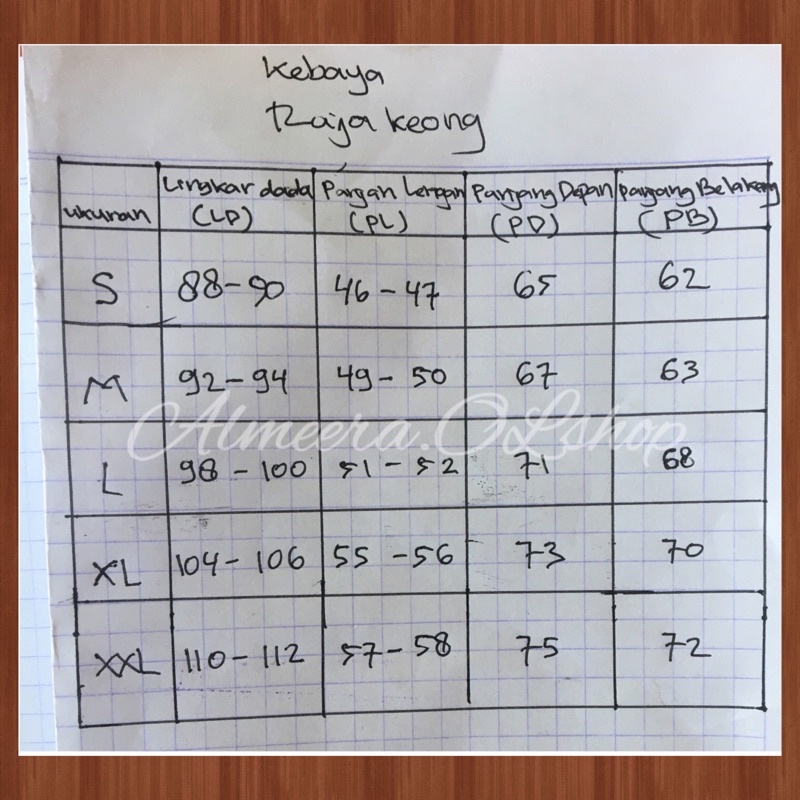 Kebaya
Raja keong
ukuran Lingkar dada Panjan Lengan Panjang Depan Panjang Belakang
(LD) (PL) (PD) (PB)
S 88-90 46-47 65 62
M 92-94 49-50 67 63
Almeera.OLshop
L 98-100 51-52 71 68
XL 104-106 55-56 73 70
XXL 110-112 57-58 75 72